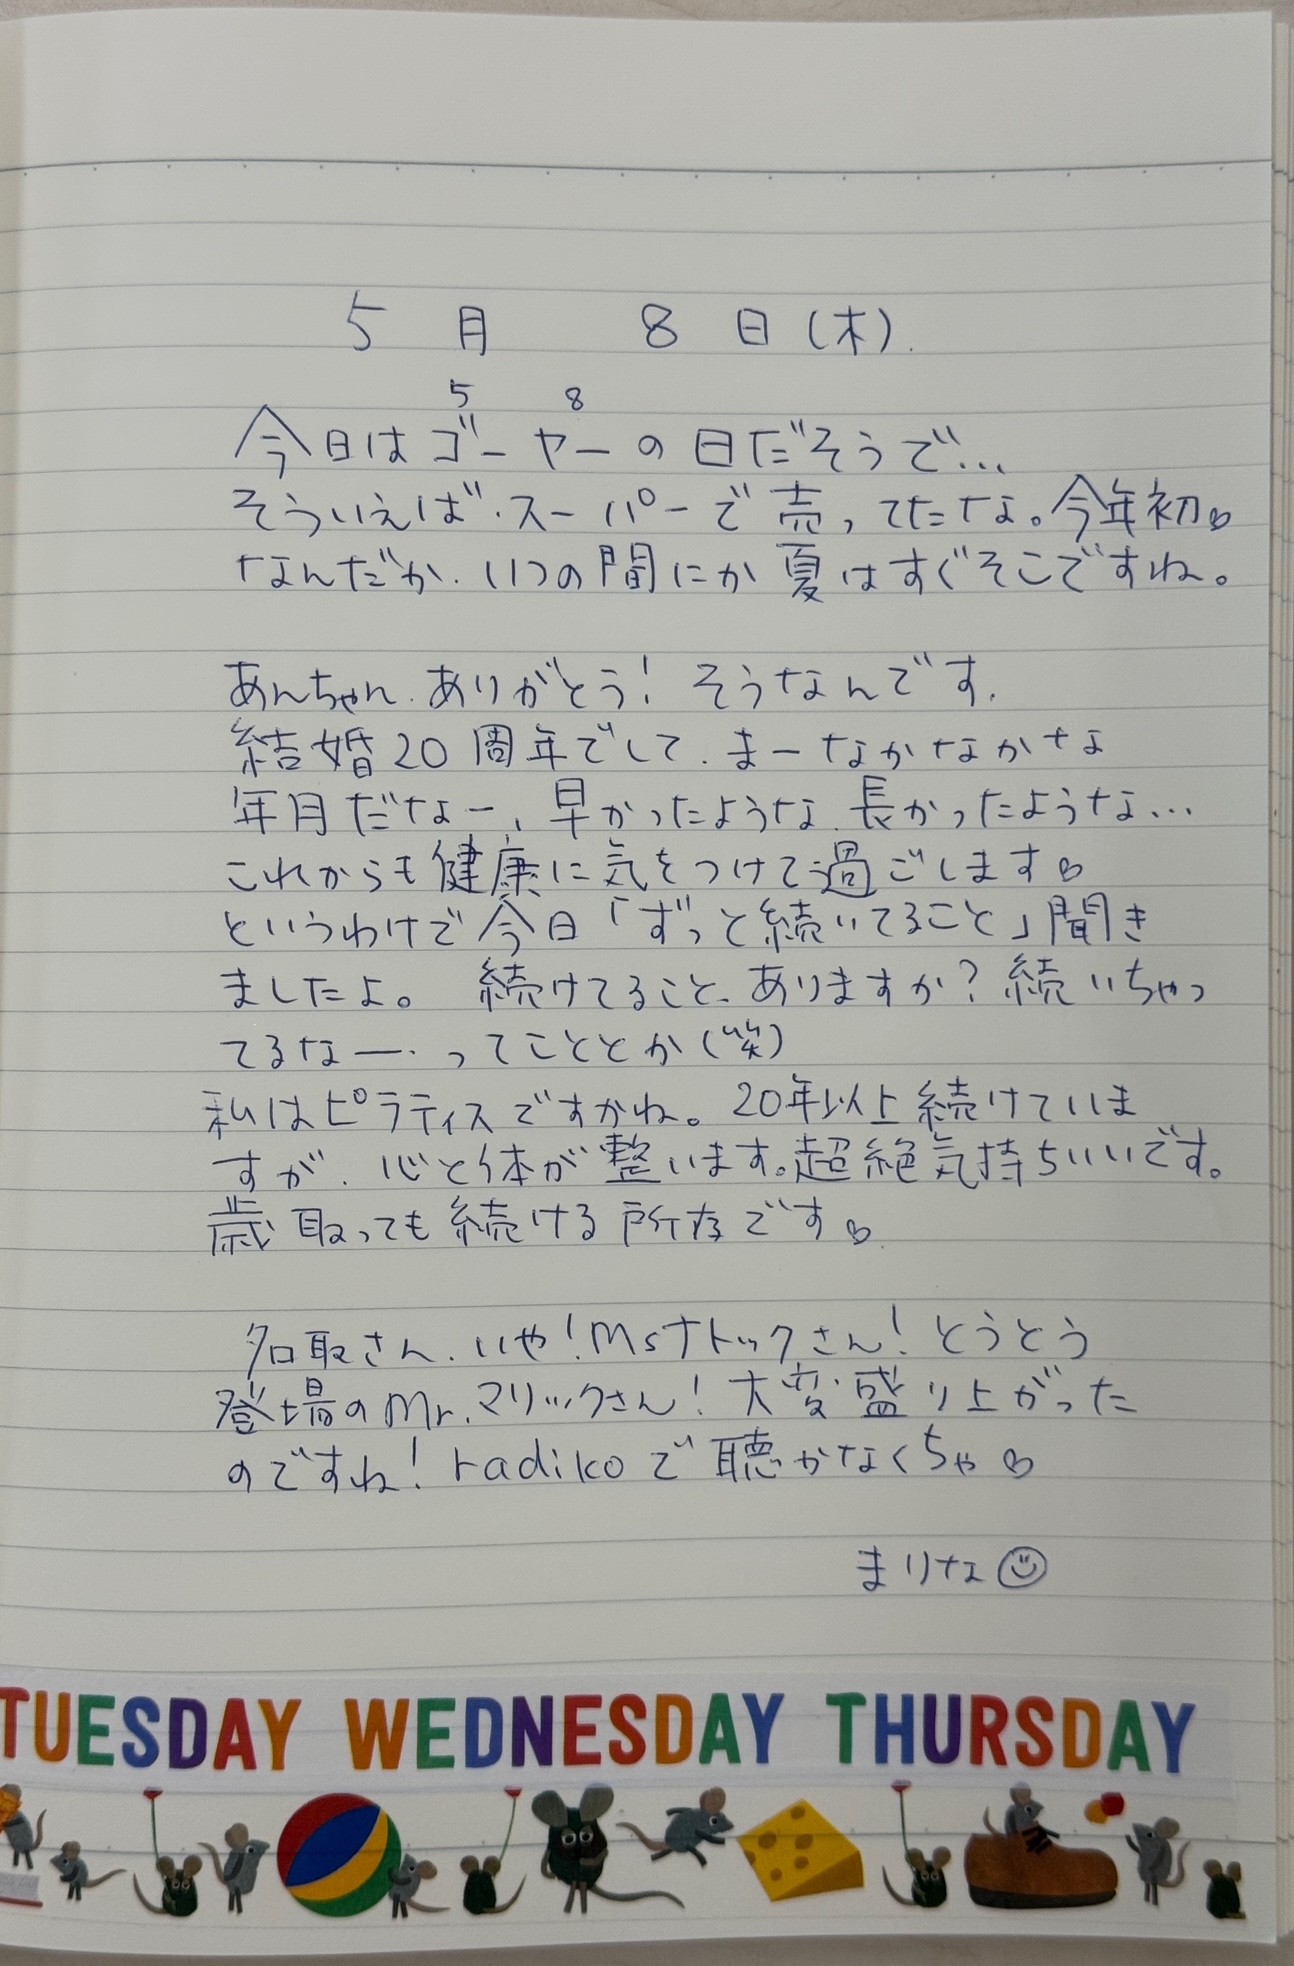 5月 8日(木).
5 8
今日はゴーヤーの日だそうで…
そういえば、スーパーで売ってたな。今年初♡
なんだか、いつの間にか夏はすぐそこですね。
あんちゃん、ありがとう！そうなんです。
結婚20周年でして、まーなかなかな
年月だなー、早かったような、長かったような…
これからも健康に気をつけて過ごします♡
というわけで今日「ずっと続いてること」聞き
ましたよ。続けてること、ありますか？続いちゃっ
てるなー、ってこととか(笑)
私はピラティスですかね。20年以上続けていま
すが、心と体が整います。超絶気持ちいいです。
歳取っても続ける所存です♡
名取さん、いや！Msナトックさん！とうとう
登場のMr.マリックさん！大変盛り上がった
のですね！radikoで聴かなくちゃ♡
まりな☺
TUESDAY WEDNESDAY THURSDAY